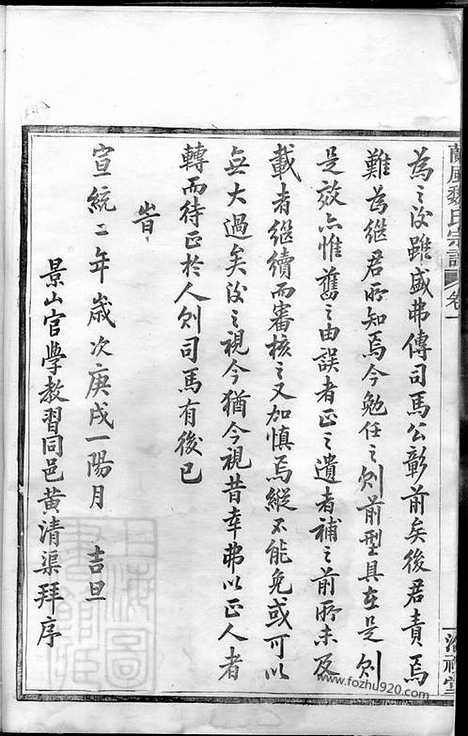 蘭風魏氏宗譜 卷一
為之後雖盛弗傳司馬公彰前矣後君責焉
難為继君所知焉今勉任之则前型具在是则
是效亦惟舊之由誤者正之遺者補之前所未及
載者继續而審核之又加慎焉縱不能免或可以
無大過矣後之視今猶今視昔幸弗以正人者
轉而待正於人则司馬有後已
旹
宣統二年歲次庚戌一陽月 吉旦
景山官學教習同邑黄清渠拜序
www.fozhu920.com